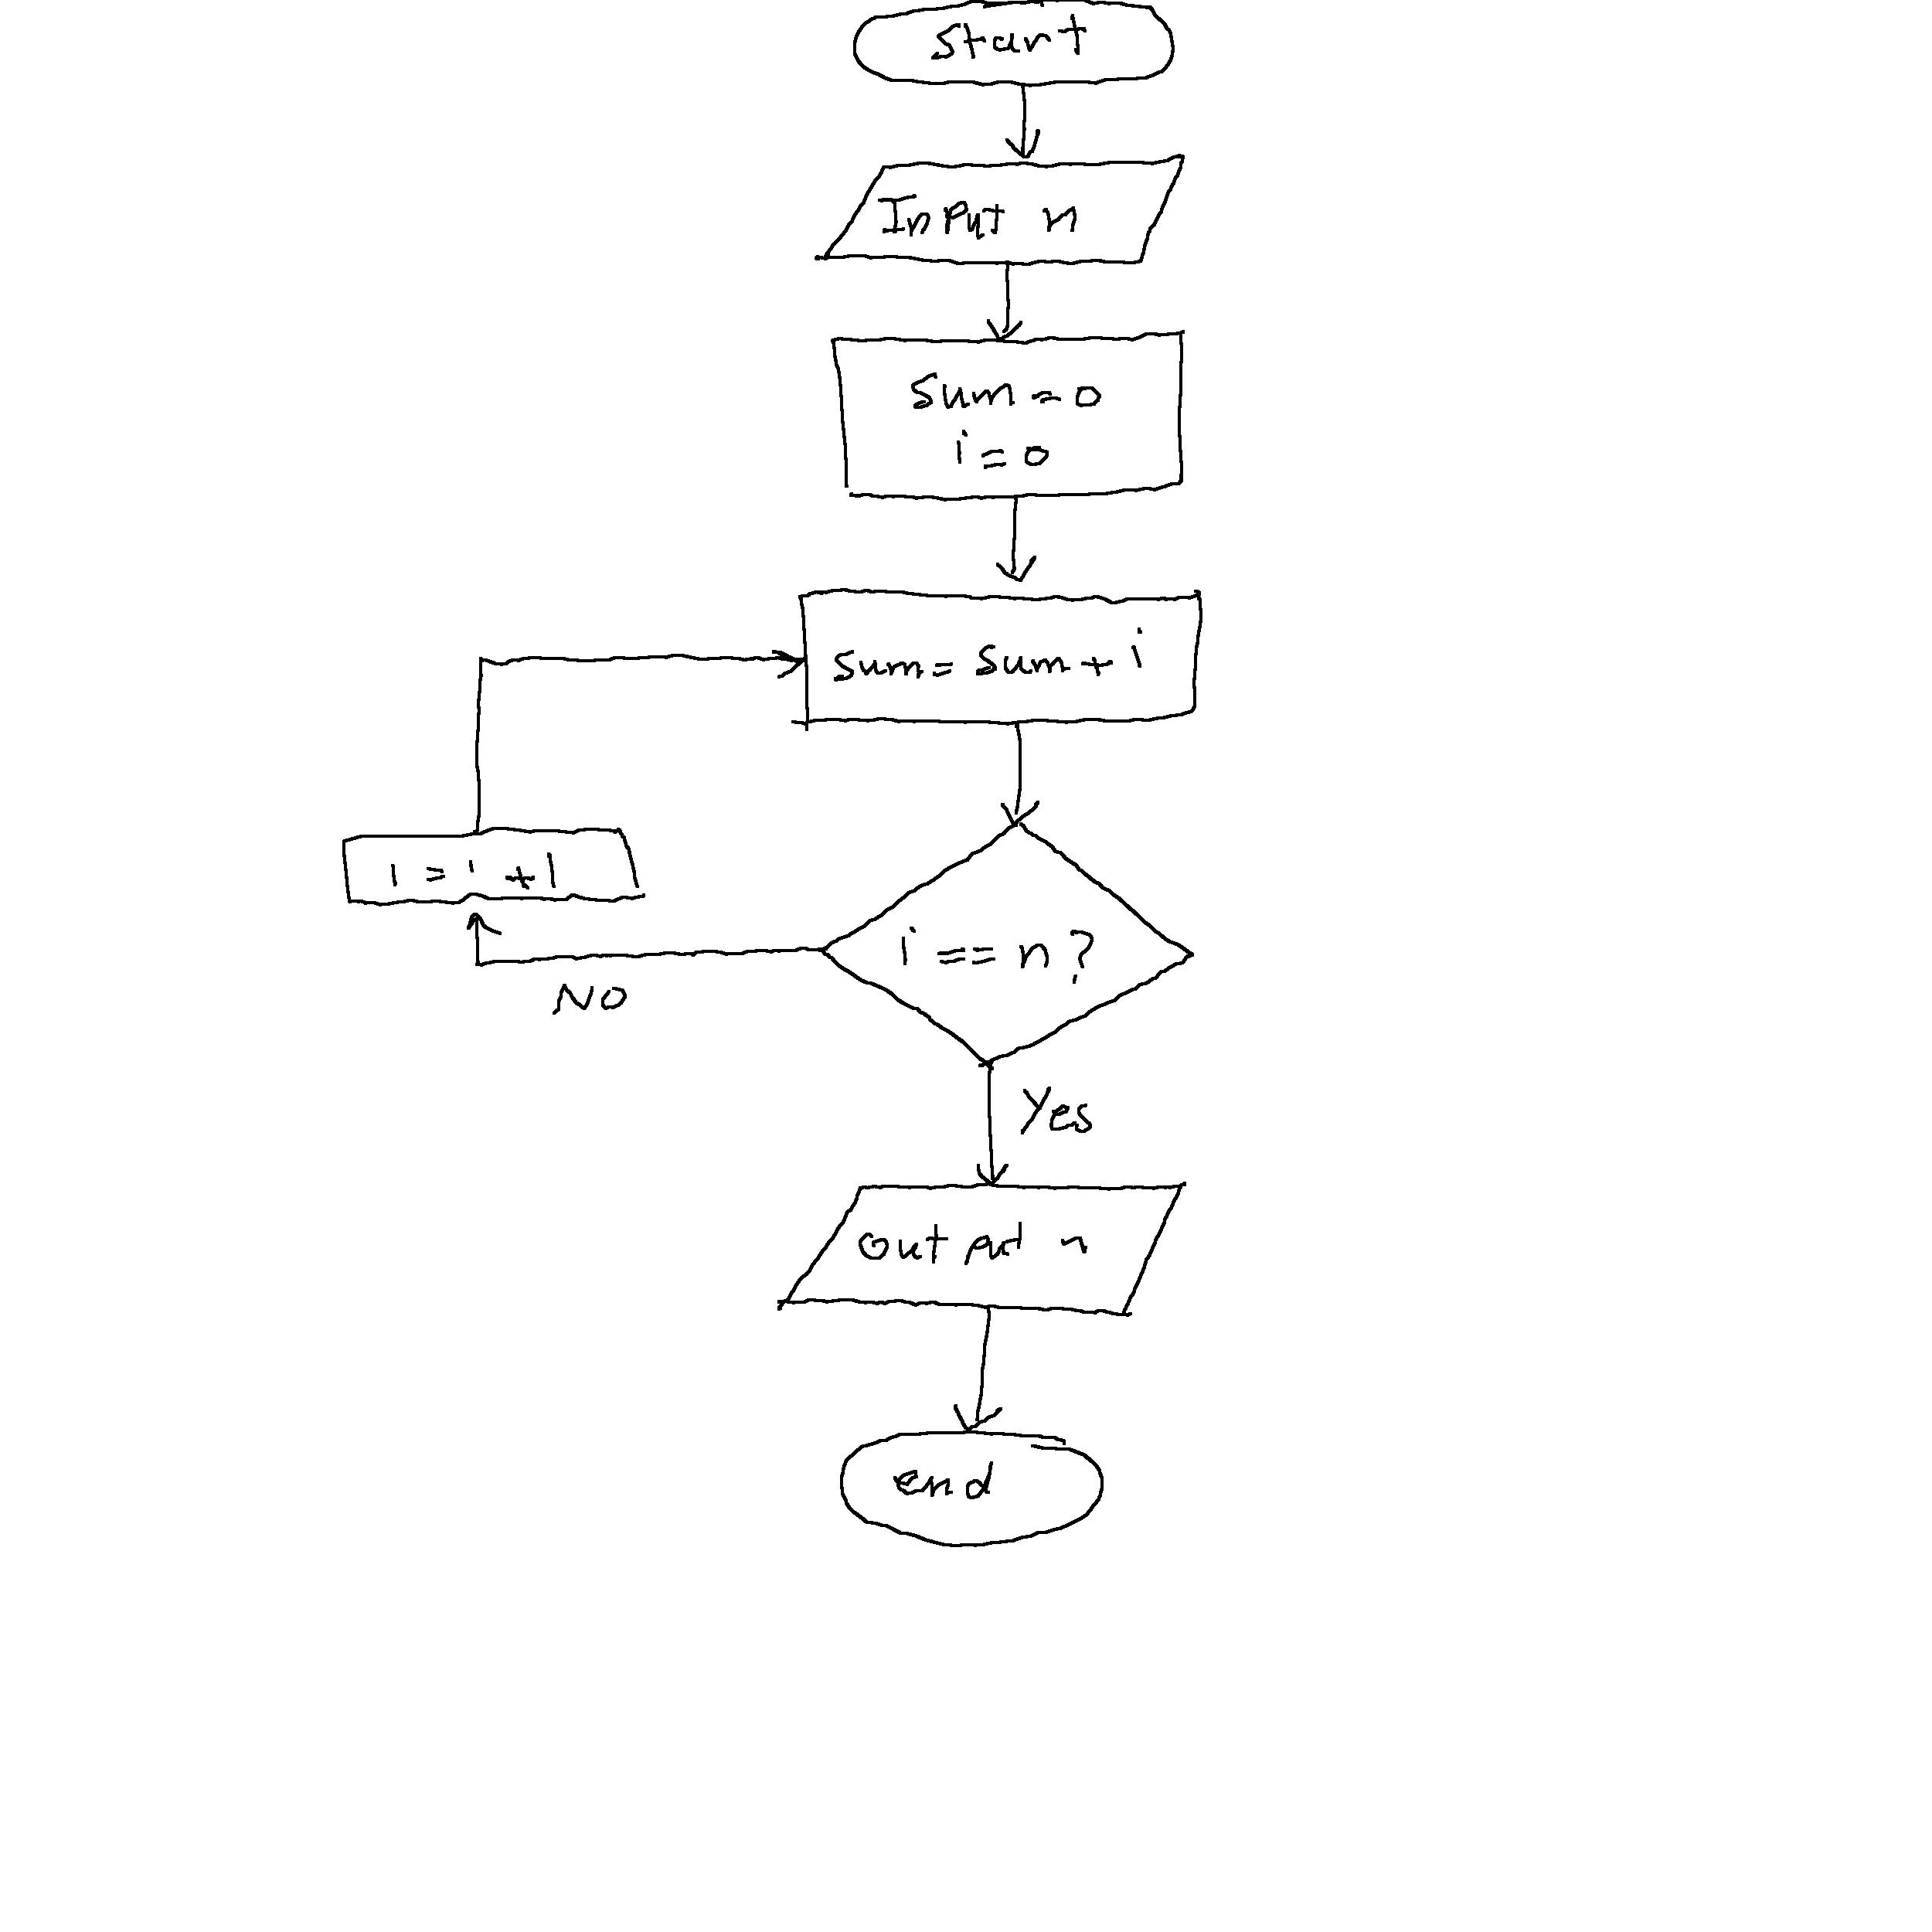 start
Input n
sum=0
i=0
sum= sum+i
i=i+1
i==n?
NO
Yes
output n
end